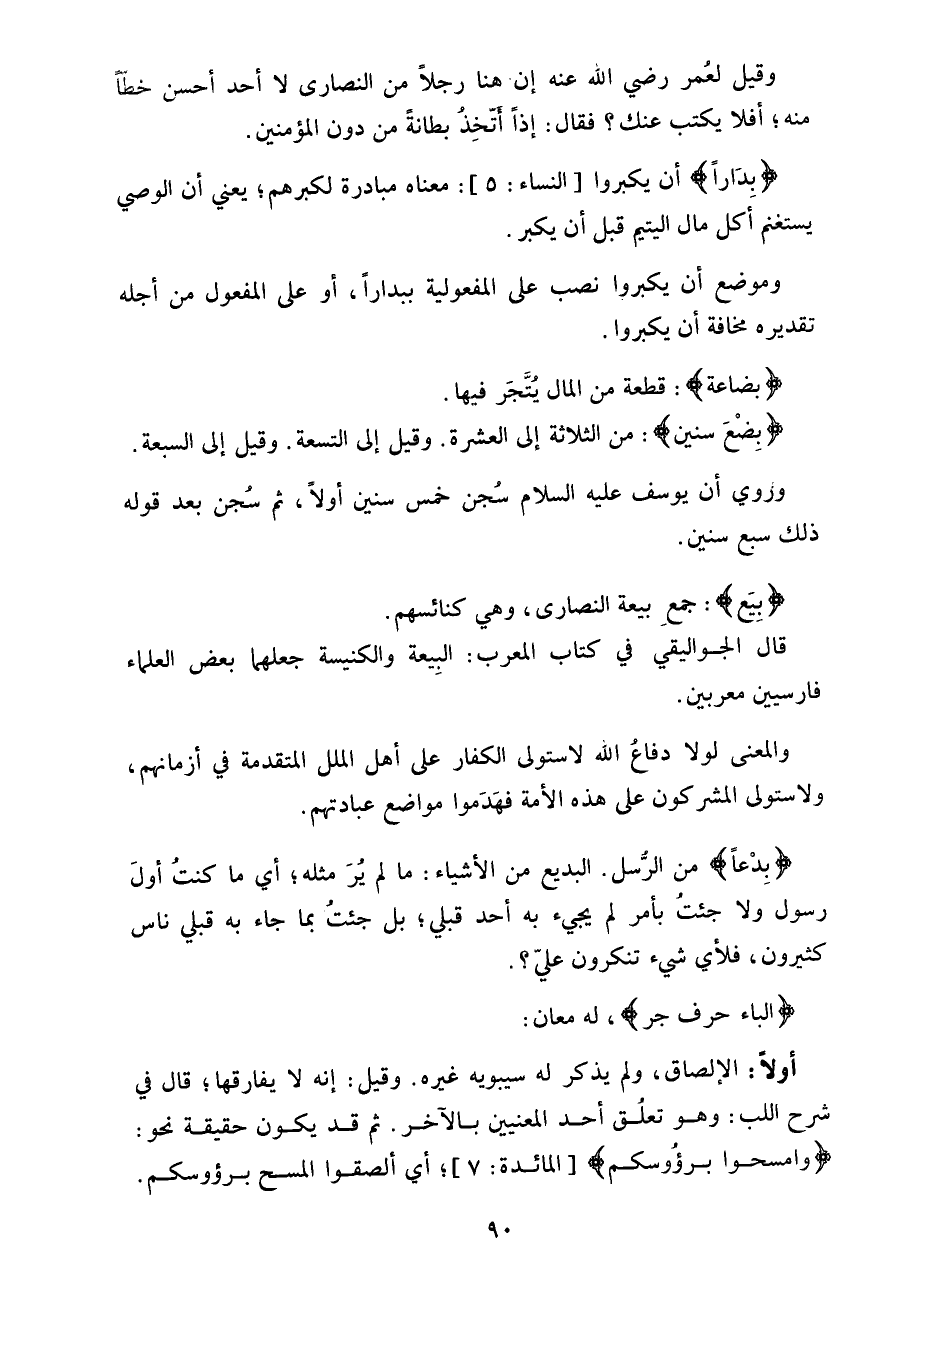 وقيل لعُمر رضي الله عنه إن هنا رجلاً من النصارى لا أحد أحسن خطّاً
منه؛ أفلا يكتب عنك؟ فقال: إذاً أَتّخِذُ بطانةً من دون المؤمنين.
﴿بِدَاراً﴾ أن يكبروا [النساء: ٥]: معناه مبادرة لكبرهم؛ يعني أن الوصي
يستغنم أكل مال اليتيم قبل أن يكبر.
وموضع أن يكبروا نصب على المفعولية ببداراً، أو على المفعول من أجله
تقديره مخافة أن يكبروا.
﴿بضاعة﴾: قطعة من المال يُتَّجَر فيها.
﴿بِضْعَ سنين﴾: من الثلاثة إلى العشرة. وقيل إلى التسعة. وقيل إلى السبعة.
وزوي أن يوسف عليه السلام سُجن خمس سنين أولاً، ثم سُجن بعد قوله
ذلك سبع سنين.
﴿بِيَع﴾: جمع بيعة النصارى، وهي كنائسهم.
قال الجواليقي في كتاب المعرب: البِيعة والكنيسة جعلهما بعض العلماء
فارسيين معربين.
والمعنى لولا دفاعُ الله لاستولى الكفار على أهل الملل المتقدمة في أزمانهم،
ولاستولى المشركون على هذه الأمة فهَدَموا مواضع عبادتهم.
﴿بِدْعاً﴾ من الرُّسل. البديع من الأشياء: ما لم يُرَ مثله؛ أي ما كنتُ أولَ
رسول ولا جئتُ بأمر لم يجيء به أحد قبلي؛ بل جئتُ بما جاء به قبلي ناس
كثيرون، فلأي شيء تنكرون عليّ؟.
﴿الباء حرف جر﴾، له معان:
أولاً: الإلصاق، ولم يذكر له سيبويه غيره. وقيل: إنه لا يفارقها؛ قال في
شرح اللب: وهو تعلُق أحد المعنيين بالآخر. ثم قد يكون حقيقة نحو:
﴿وامسحوا برؤُوسكم﴾ [المائدة: ٧]؛ أي ألصقوا المسح برؤوسكم.
٩٠